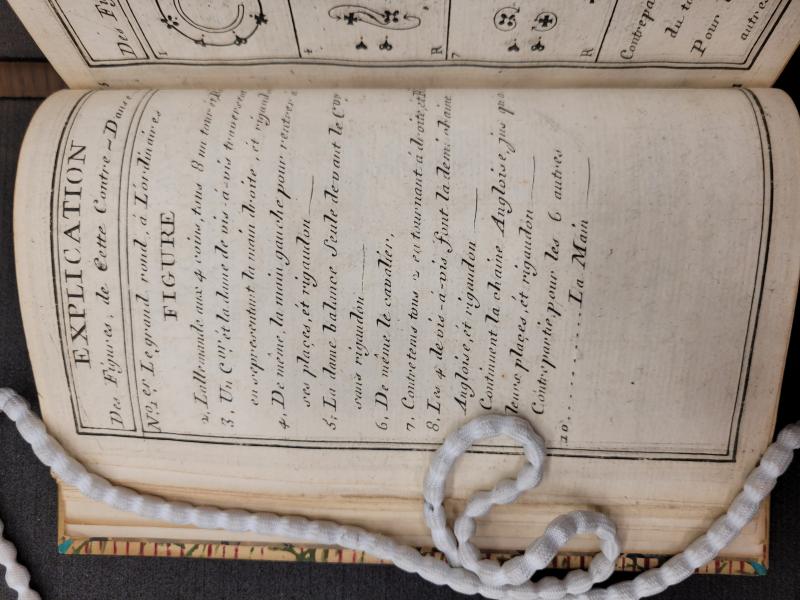 EXPLICATION
Des Figures, de Cette Contre-Danse
No. 1er Le grand rond, à L'ordinaires
FIGURE
2, Lallemande aux 4 coins, tous 8 un tour et
3, Un Cer et la dame de vis-à-vis traversent
en representant la main droite, et rigaudon
4, De même, la main gauche pour rentrer à
ses places, et rigaudon
5, La dame balance Seule devant le Cer
sans rigaudon
6, De même le cavalier.
7, Contretems tous 2 en tournant à droite, et
8, Les 4 de vis-à-vis font la demi chaine
Angloise, et rigaudon
Continuent la chaine Angloise, jusqu'a
leurs places, et rigaudon
Contrepartie, pour les 6 autres
10. La Main
Des
1
4
R
7
R
Contrepa
du to
Pour
autres